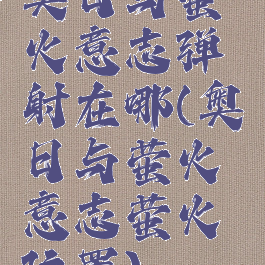 奥日与萤
火意志弹
射在哪(奥
日与萤火
意志萤火
位置)